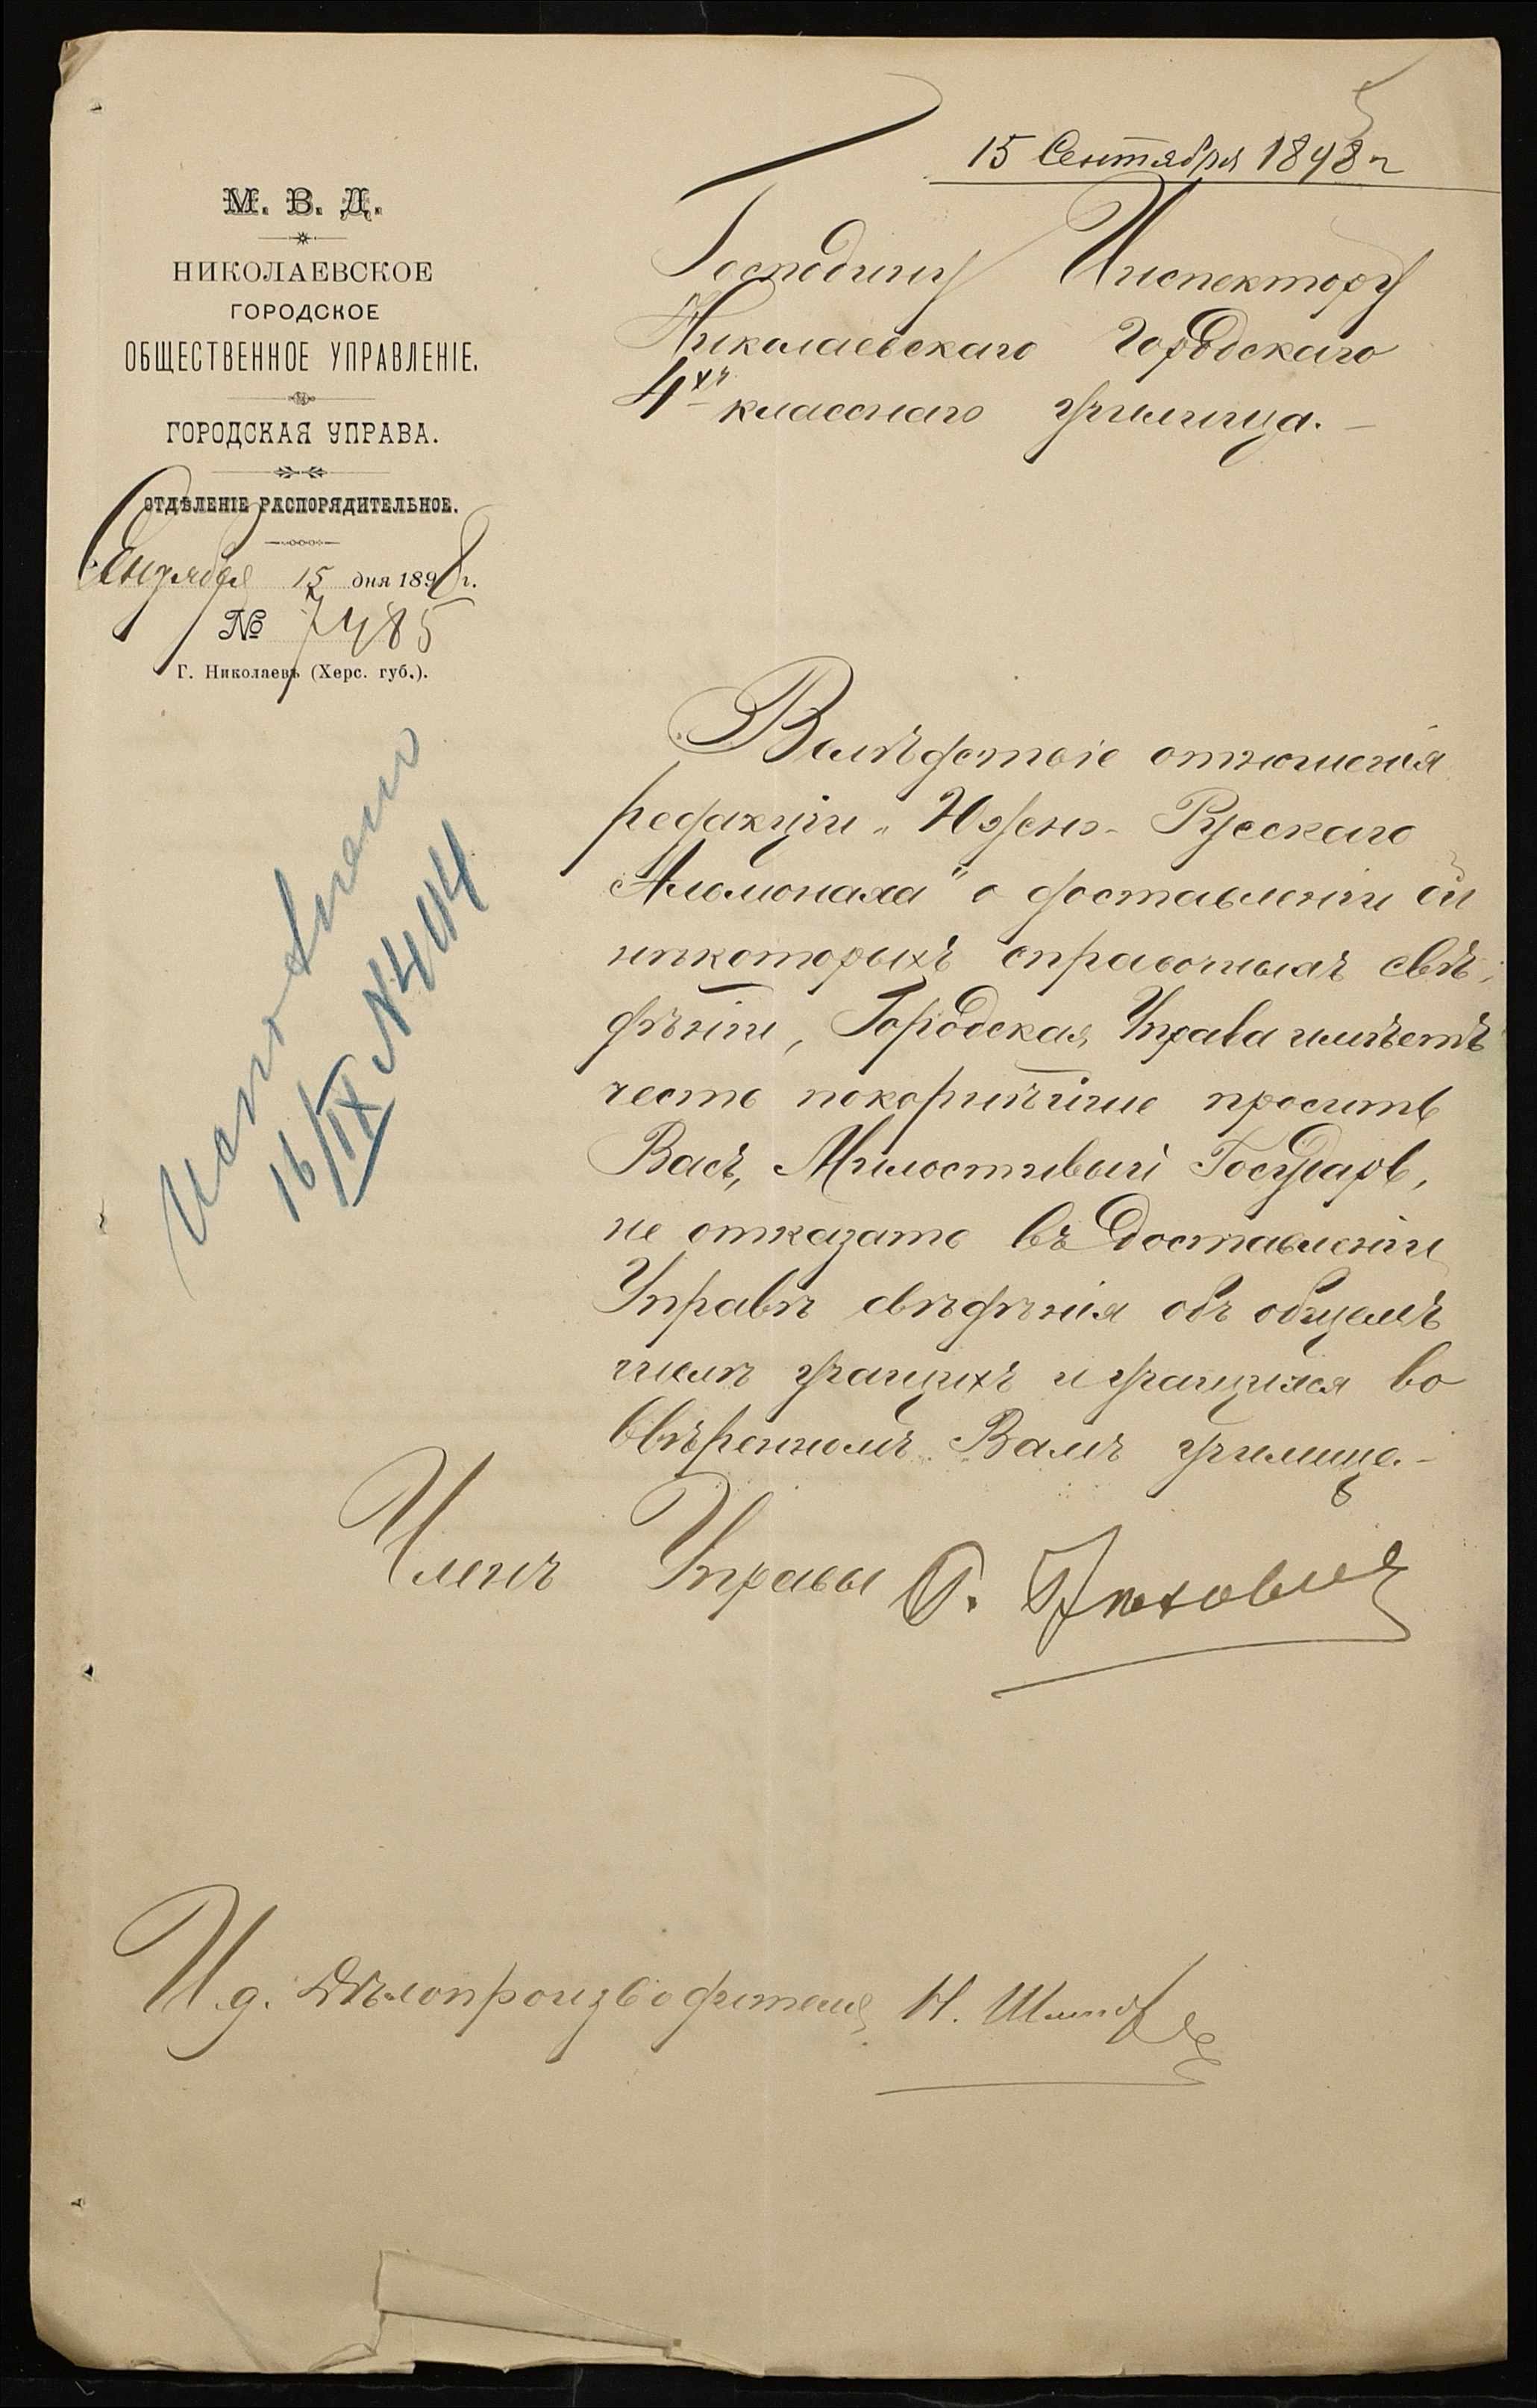 5
15 Сентября 1898 г
М. В. Д.
НИКОЛАЕВСКОЕ
ГОРОДСКОЕ
ОБЩЕСТВЕННОЕ УПРАВЛЕНІЕ.
ГОРОДСКАЯ УПРАВА.
ОТДѢЛЕНІЕ РАСПОРЯДИТЕЛЬНОЕ.
Сентября 15 дня 1898 г.
№ 7485
Г. Николаевъ (Херс. губ.).
Господину Инспектору
Николаевскаго Городскаго
4хъ класснаго училища.-
Вслѣдствіе отношенія
редакціи „Южно-Русскаго
Альманаха" о доставленіи ей
нѣкоторыхъ справочныхъ свѣ-
дѣній, Городская Управа имѣетъ
честь покорнѣйше просить
Васъ, Милостивый Государь,
не отказать въ доставленіи
Управѣ свѣдѣнія объ общемъ
числѣ учащихъ и учащихся во
ввѣренномъ Вамъ училище.-
Исполнено
16/IX №444
Членъ Управы
И. д. Дѣлопроизводителя Н.